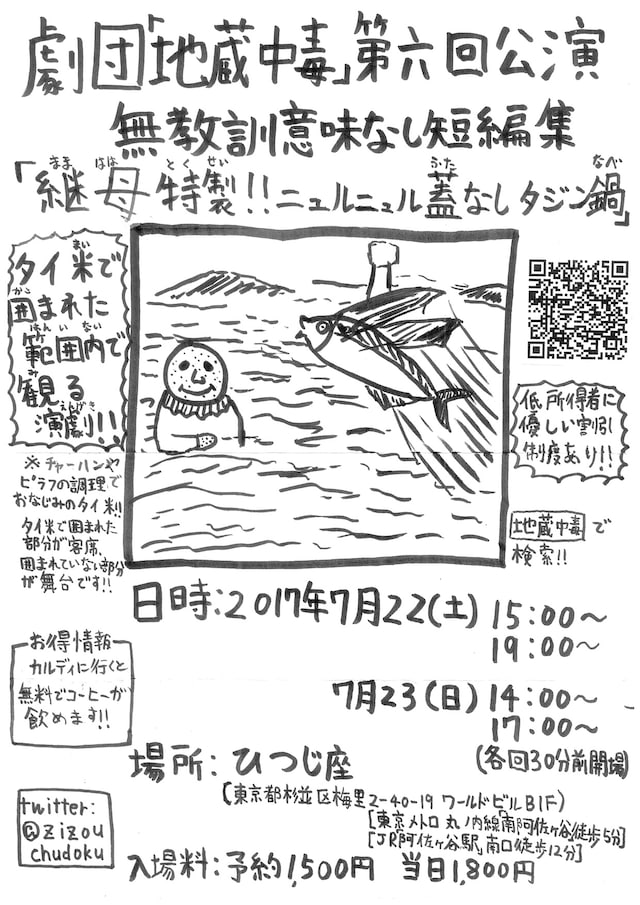 劇団「地蔵中毒」第六回公演
無教訓意味なし短編集
「継母特製!!ニュルニュル蓋なしタジン鍋」
まま はは とく せい ふた なべ
タイ米で
まい
囲まれた
かこ
範囲内で
はんいない
観る
み
演劇!!
えんげき
※チャーハンや
ピラフの調理で
おなじみのタイ米!!
タイ米で囲まれた
部分が客席、
囲まれていない部分
が舞台です!!
低所得者に
優しい割引
制度あり!!
地蔵中毒で
検索!!
日時:2017年7月22(土) 15:00〜
19:00〜
7月23(日) 14:00〜
17:00〜
(各回30分前開場)
お得情報
カルディに行くと
無料でコーヒーが
飲めます!!
場所:ひつじ座
(東京都杉並区梅里2-40-19 ワールドビルB1F)
[東京メトロ丸ノ内線「南阿佐ヶ谷」徒歩5分]
[JR「阿佐ヶ谷駅」南口徒歩12分]
twitter:
@zizou
chudoku
入場料:予約1,500円 当日1,800円